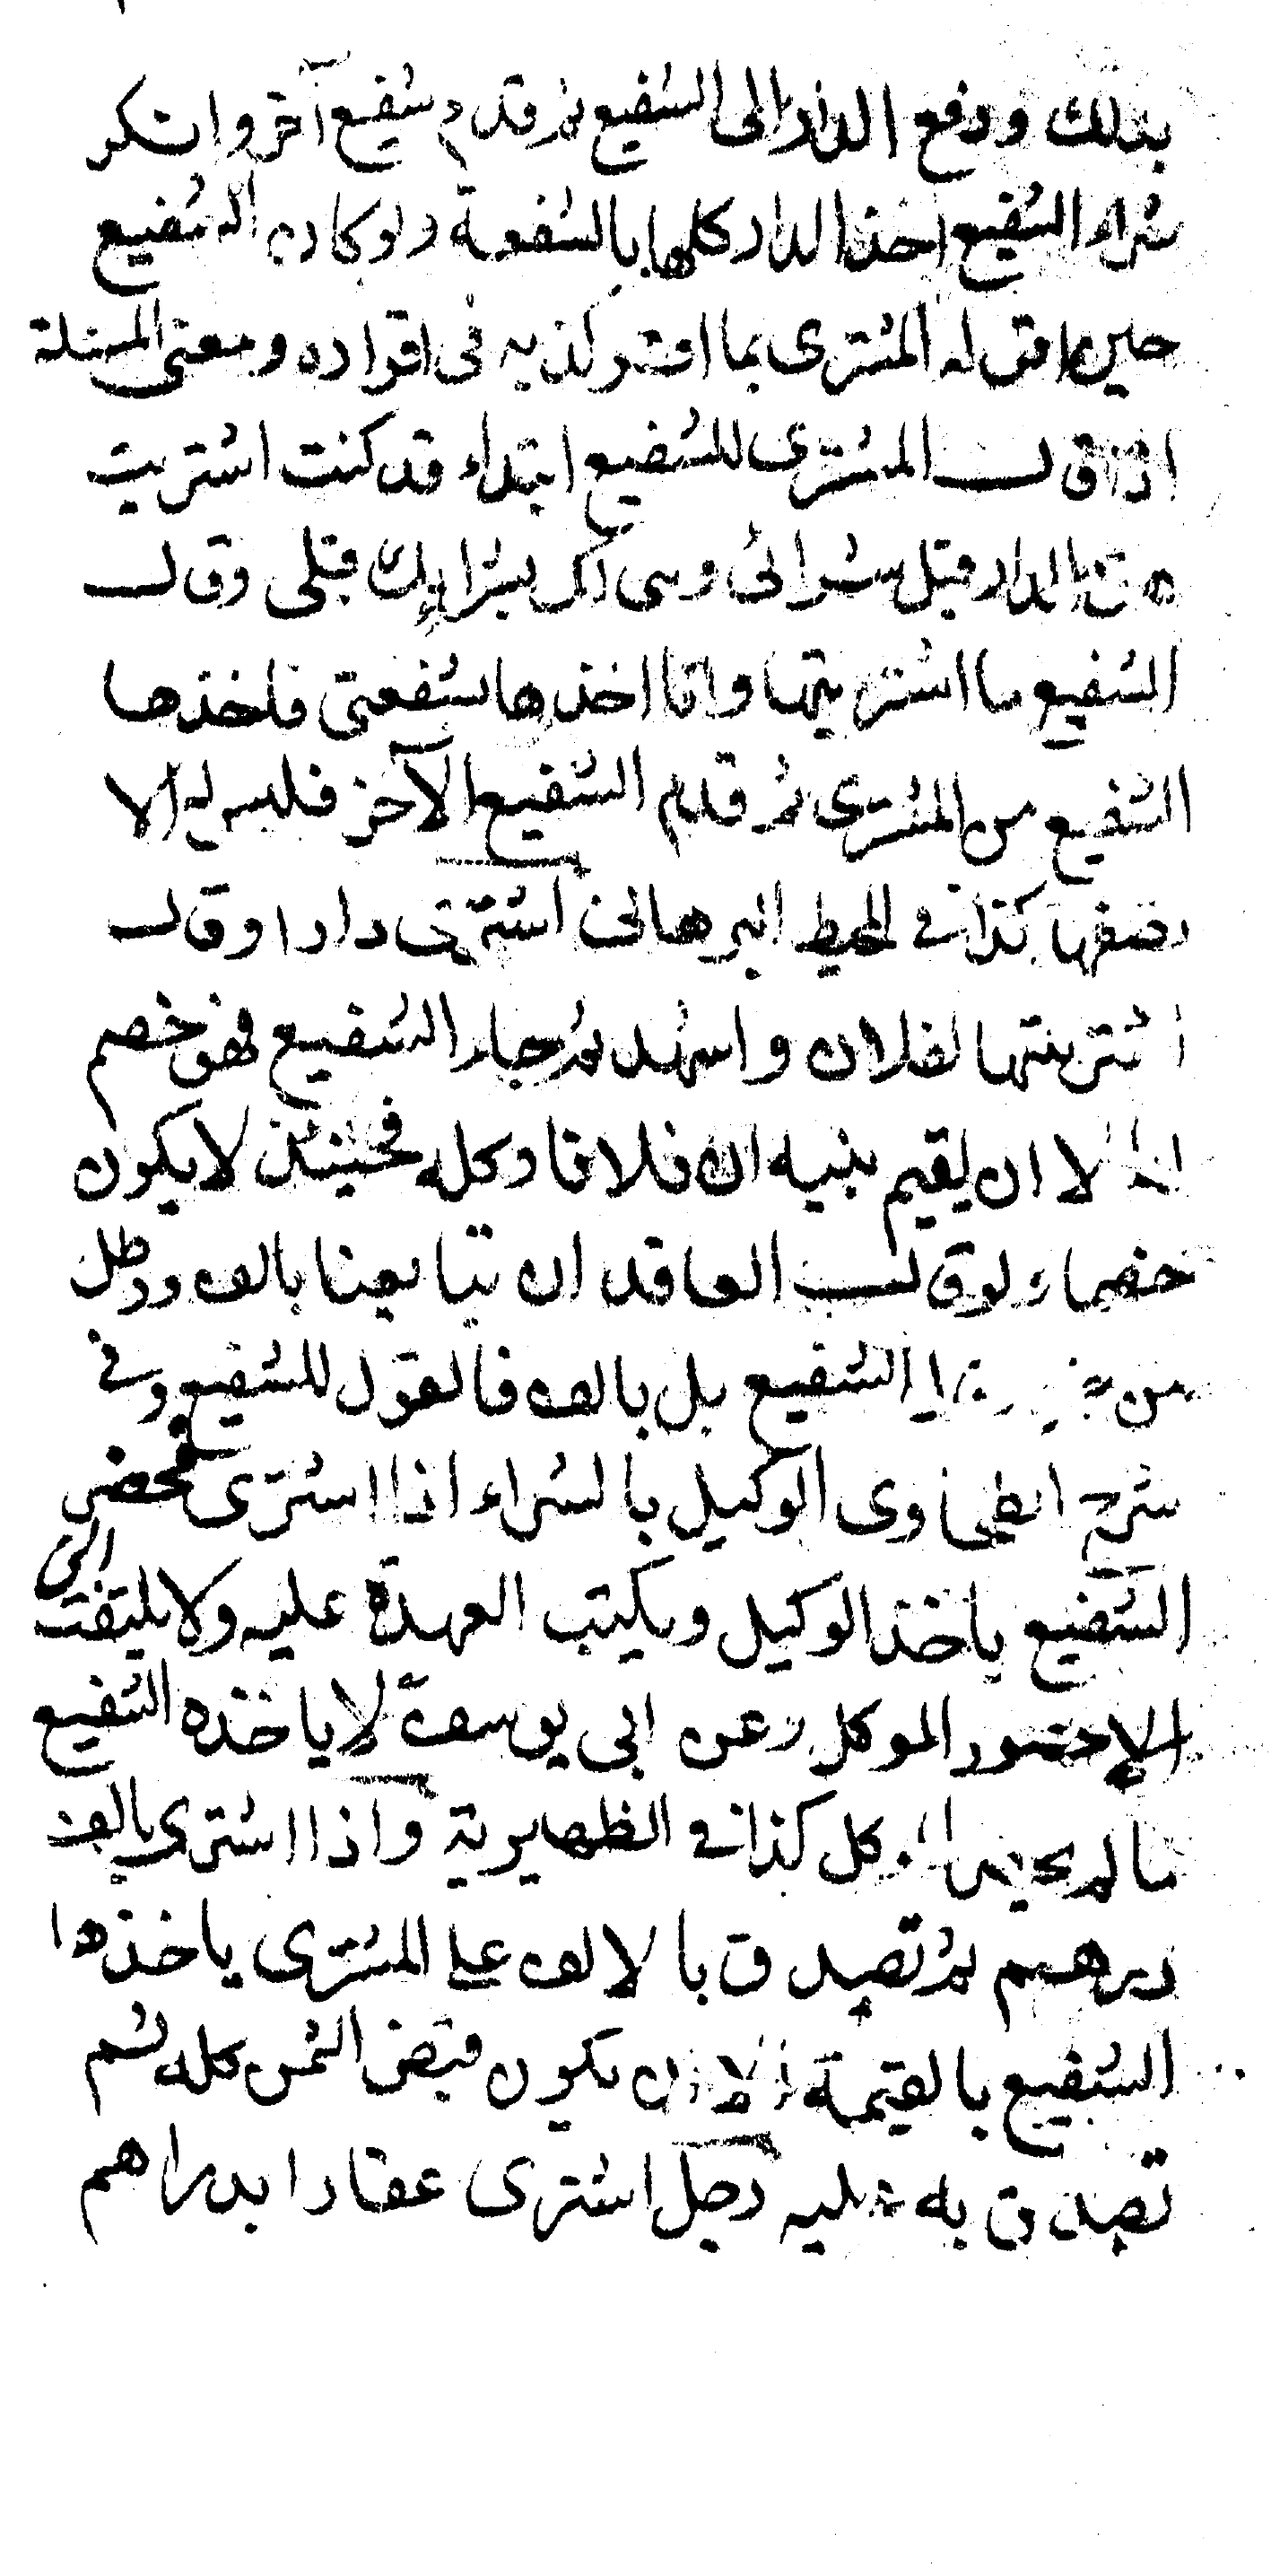 بذلك ودفع الدار الى الشفيع ثم قدم شفيع آخر وانكر
شراء الشفيع اخذ الدار كلها بالشفعة ولو كان الشفيع
حين اقر له المشترى بما اقر كذبه فى اقراره ومعنى المسئلة
اذا قال المشترى للشفيع ابتداء قد كنت اشتريت
هذه الدار قبل شرائى وسى اكر بشرايك قبلى وقال
الشفيع ما اشتريتها وانا اخذها بشفعتى فاخذها
الشفيع من المشترى ثم قدم الشفيع الآخر فليس له الا
نصفها كذا فى المحيط البرهانى اشترى دارا وقال
اشتريتها لفلان واشهد ثم جاء الشفيع فهو خصم
الا ان يقيم بنيه ان فلانا وكله فحينئذ لا يكون
خصما ولو قال العاقدان تبايعنا بالف ورطل
من الشفيع بل بالف فالقول للشفيع وفى
شرح الطحاوى الوكيل بالشراء اذا اشترى فحضر
الشفيع ياخذ الوكيل ويكتب العهدة عليه ولا يلتفت الى
الا حضور الموكل وعن ابى يوسف لا ياخذه الشفيع
ما لم يحضر الموكل كذا فى الظهيرية واذا اشترى بالف
درهم ثم تصدق بالالف على المشترى ياخذها
الشفيع بالقيمة الا ان يكون قبض الثمن كله ثم
تصدق به عليه رجل اشترى عقارا بدراهم